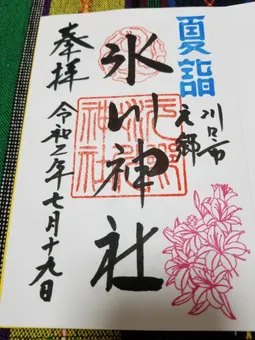 夏詣
川口市
元郷
氷川神社
奉拝
令和二年七月十九日